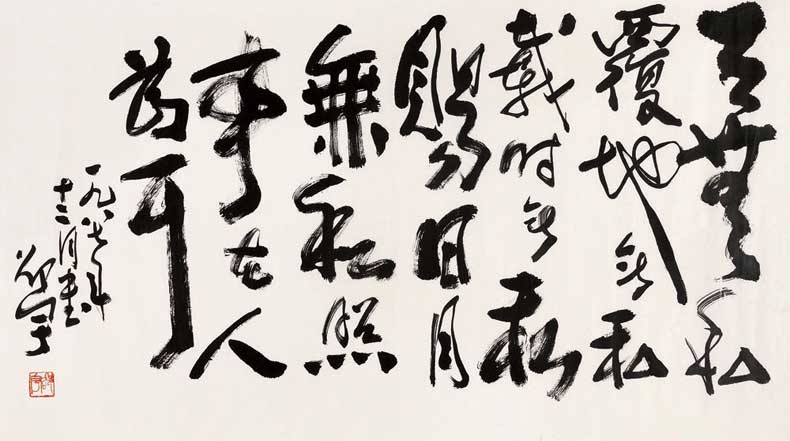 天無私
覆地無私
載时無私
賜日月
無私照
事在人
為耳
一九八七年
十二月書